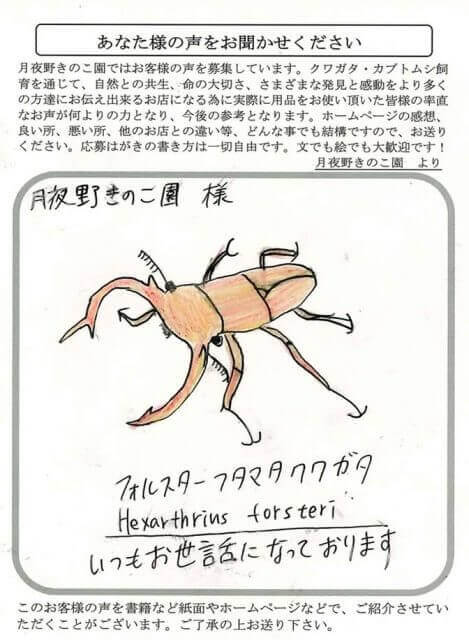 あなた様の声をお聞かせください
月夜野きのこ園ではお客様の声を募集しています。クワガタ・カブトムシ飼
育を通じて、自然との共生、命の大切さ、さまざまな発見と感動をより多く
の方達にお伝え出来るお店になる為に実際に用品をお使い頂いた皆様の率直
なお声が何よりの力となり、今後の参考となります。ホームページの感想、
良い所、悪い所、他のお店との違い等、どんな事でも結構ですので、お送り
ください。応募はがきの書き方は一切自由です。文でも絵でも大歓迎です！
月夜野きのこ園　より
月夜野きのこ園　様
フォルスターフタマタクワガタ
Hexarthrius forsteri
いつもお世話になっております
このお客様の声を書籍など紙面やホームページなどで、ご紹介させてい
ただくことがございます。ご了承の上お送り下さい。